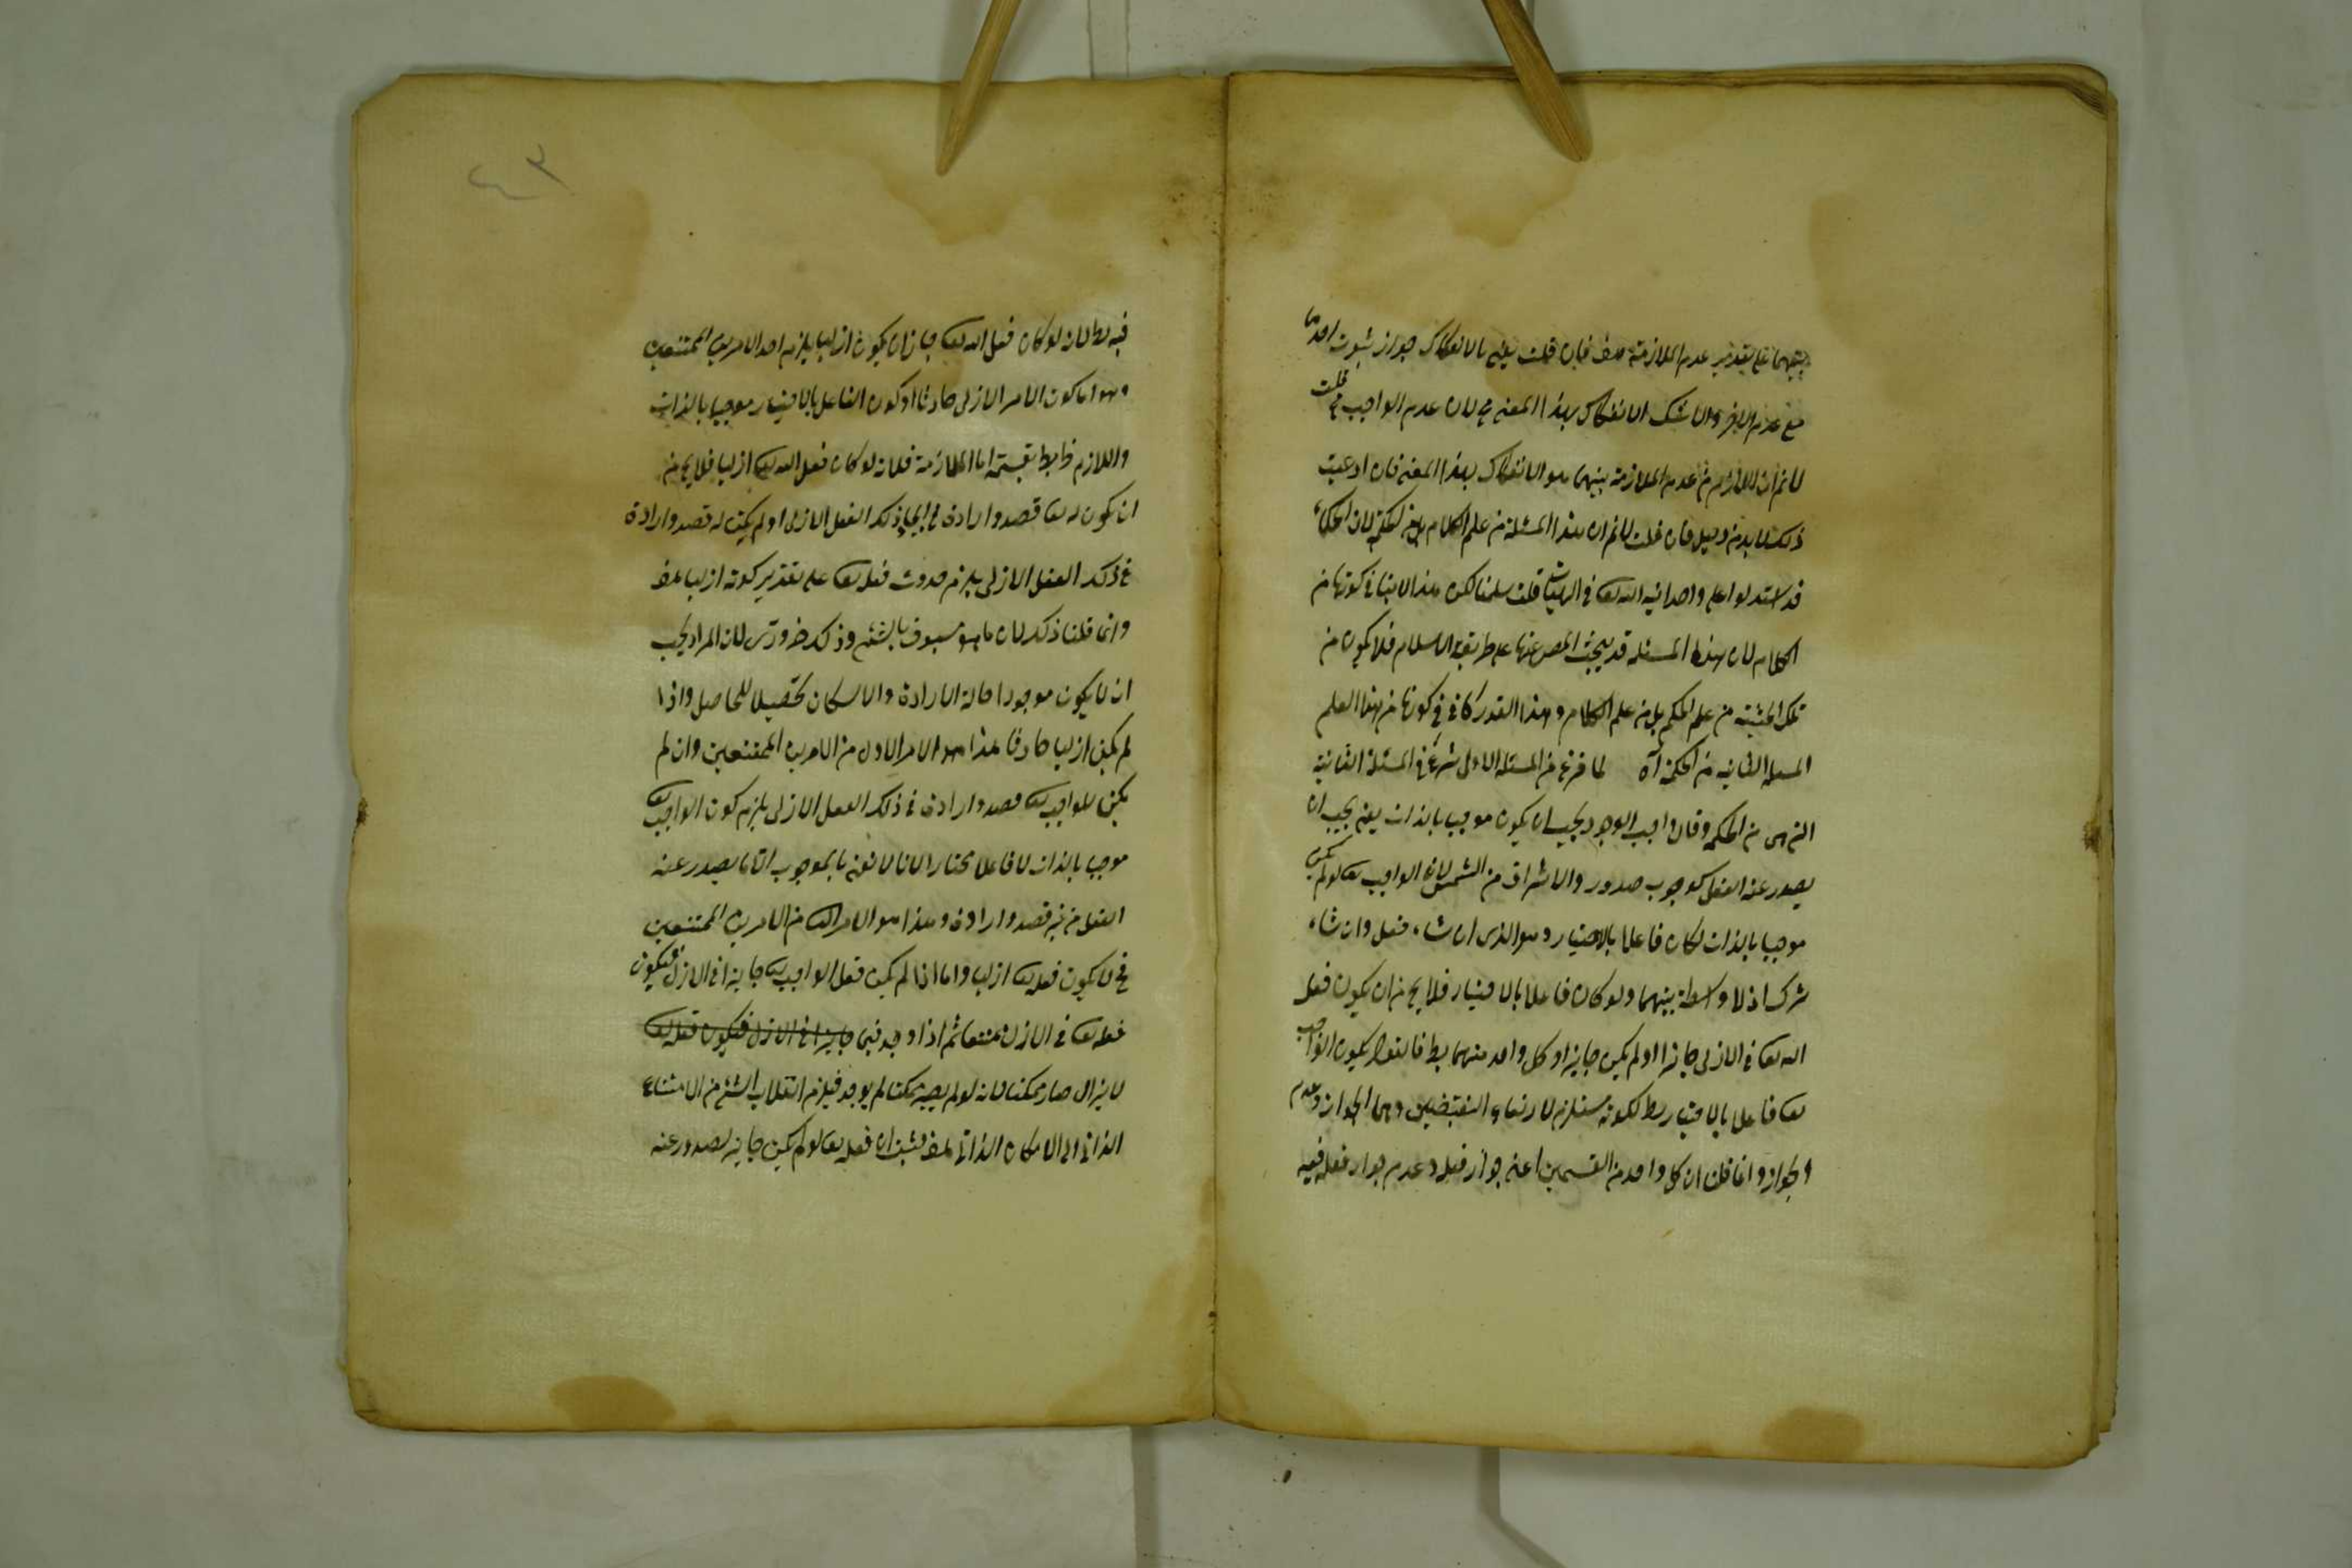 بينهما على تقدير عدم الملازمة هف فان قلت يعنى بالانفكاك جواز ثبوت احدهما
مع عدم الاخر ولا شك الانفكاك بهذا المعنى مح لان عدم الواجب مح قلت
لا نم ان اللازم من عدم الملازمة بينهما هو الانفكاك بهذا المعنى فان ادعيت
ذلك لا بد من دليل فان قلت لا نم ان هذا المسئلة من علم الكلام بل من الحكمة لان الحكماء
قد استدلوا على واحدانية الله تعا فى الهيات قلت سلمنا لكن هذا لا ينافى كونها من
الكلام لان هذا المسئلة قد يبحث المص عنها على طريقة الاسلام فلا يكون من
تلك الحيثية من علم الحكم بل من علم الكلام وهذا القدر كاف فى كونها من هذا العلم
المسئلة الثانية من الحكمة آه لما فرغ من المسئلة الاولى شرع فى المسئلة الثانية
التى هى من الحكمة وقال واجب الوجود يجب ان يكون موجب بالذات يعنى يجب ان
يصدر عنه الفعل كوجوب صدور والاشراق من الشمس لانه الواجب تعا لو لم يكن
موجبا بالذات لكان فاعلا بالاختيار وهو الذى ان شاء فعل وان شاء
ترك اذ لا واسطة بينهما ولو كان فاعلا بالاختيار فلا يخ من ان يكون فعل
الله تعا فى الازلى جائزا او لم يكن جايزا وكل واحد منهما بط فالقول بكون الواجب
تعا فاعلا بالاختيار بط لكونه مستلزم لارتفاع النقيضين وهما الجواز وعدم
الجواز وانما قلنا ان كل واحد من القسمين اعنى جواز فعله وعدم جواز فعله فيه
٤٣
فيه بط لانه لو كان فعل الله تعا جاز ان يكون ازليا يلزم احد الامرين الممتنعين
وهو اما كون الامر الازلى حادثا او كون الفاعل بالاختيار موجبا بالذات
واللازم بط اما الملازمة فلانه لو كان فعل الله تعا ازليا فلا يخ من
ان يكون له تعا قصد وارادة فى ايجاد ذلك الفعل الازلى او لم يكن له قصد وارادة
فى ذلك الفعل الازلى يلزم حدوث فعله تعا على تقدير كونه ازليا هف
وانما قلنا ذلك لان ما هو مسبوق بالشئ وذلك ضرورى لان المراد يجب
ان لا يكون موجودا حالة الارادة والا لكان تحصيلا للحاصل واذا
لم يكن ازليا حادثا هذا هو الامر الاول من الامرين الممتنعين وان لم
يكن للواجب تعا قصد وارادة فى ذلك الفعل الازلى يلزم كون الواجب تعا
موجبا بالذات لا فاعلا مختارا لانا لا نعنى بالموجب الا ما يصدر عنه
الفعل من غير قصد وارادة وهذا هو الامر الثانى من الامرين الممتنعين
فح لا يكون فعله تعا ازليا واما اذا لم يكن فعل الواجب تعا جايزا فى الازل فيكون
فعله تعا فى الازل ممتنعا ثم اذا وجد فيما جايزا فى الازل فيكون فعله تعا
لا يزال صار ممكنا لانه لو لم يصر ممكنا لم يوجد فيلزم انقلاب الشئ من الامتناع
الذاتى الى الامكان الذاتى هف فثبت ان فعله تعا لو لم يكن جايز لصدور عنه